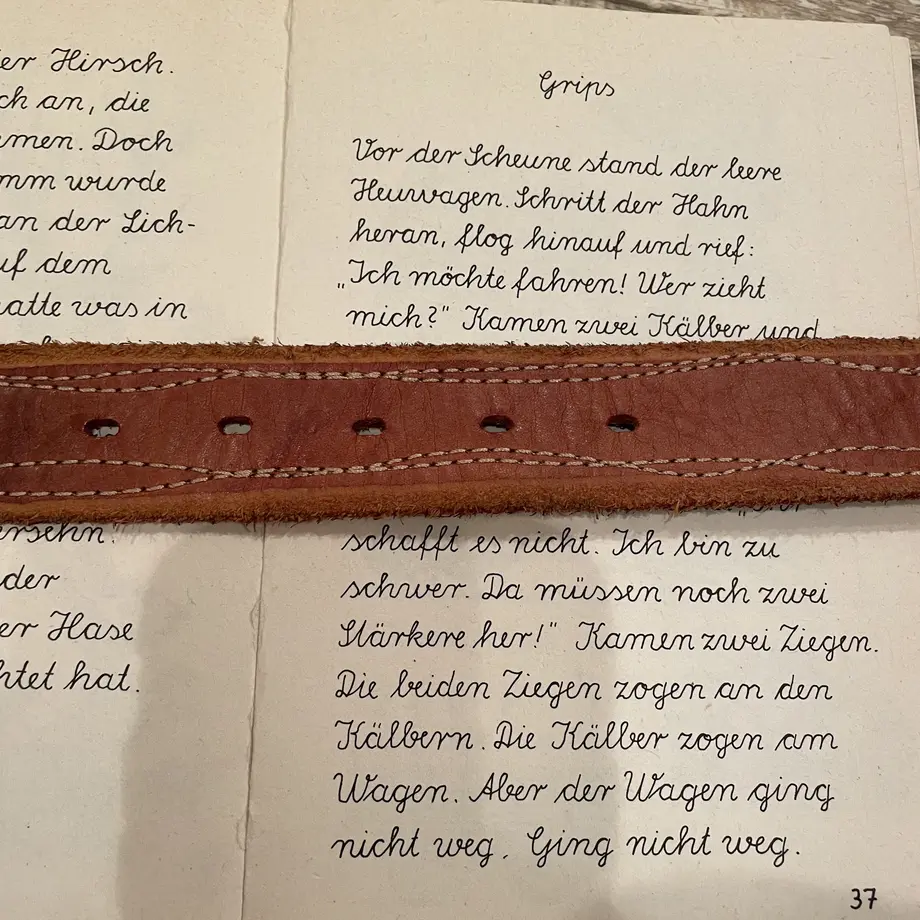 er Hirsch.
ch an, die
men. Doch
mm wurde
an der Lich-
uf dem
atte was in
ersehn."
der
er Hase
htet hat.
Grips
Vor der Scheune stand der leere
Heuwagen. Schritt der Hahn
heran, flog hinauf und rief:
„Ich möchte fahren! Wer zieht
mich?" Kamen zwei Kälber und
schafft es nicht. Ich bin zu
schwer. Da müssen noch zwei
Stärkere her!" Kamen zwei Ziegen.
Die beiden Ziegen zogen an den
Kälbern. Die Kälber zogen am
Wagen. Aber der Wagen ging
nicht weg. Ging nicht weg.
37